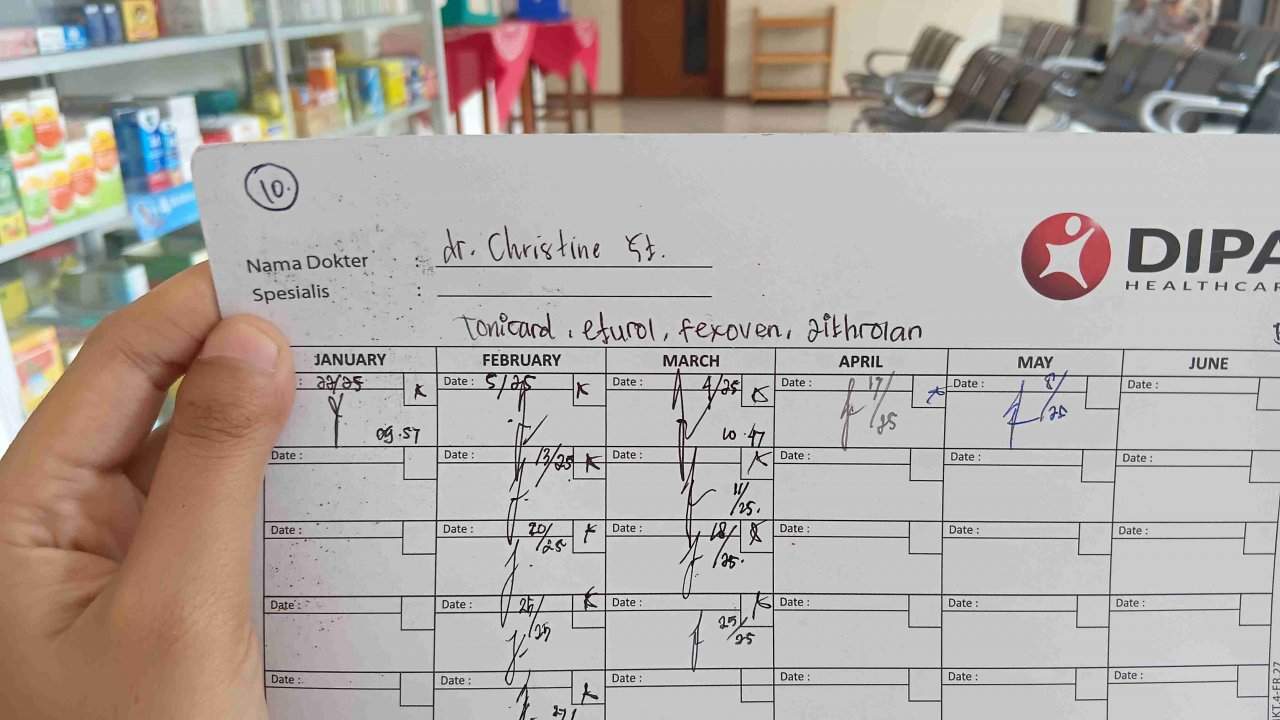 10.
Nama Dokter : dr. Christine
Spesialis :
DIPA
HEALTHCAR
Tonicard, efurol, fexoven, zithrolan
JANUARY FEBRUARY MARCH APRIL MAY JUNE
: 22/25 K Date : 5/25 K Date : 4/25 K Date : 17/25 K Date : 8/25 Date :
09.57 10.47
Date : Date : 13/25 K Date : 11/25. K Date : Date : Date :
Date : Date : 20/25 K Date : 18/25. K Date : Date : Date :
Date : Date : 25/25 K Date : 25/25 K Date : Date : Date :
Date : Date : 27/ K Date : Date : Date : Date :
KT.4-FR.27